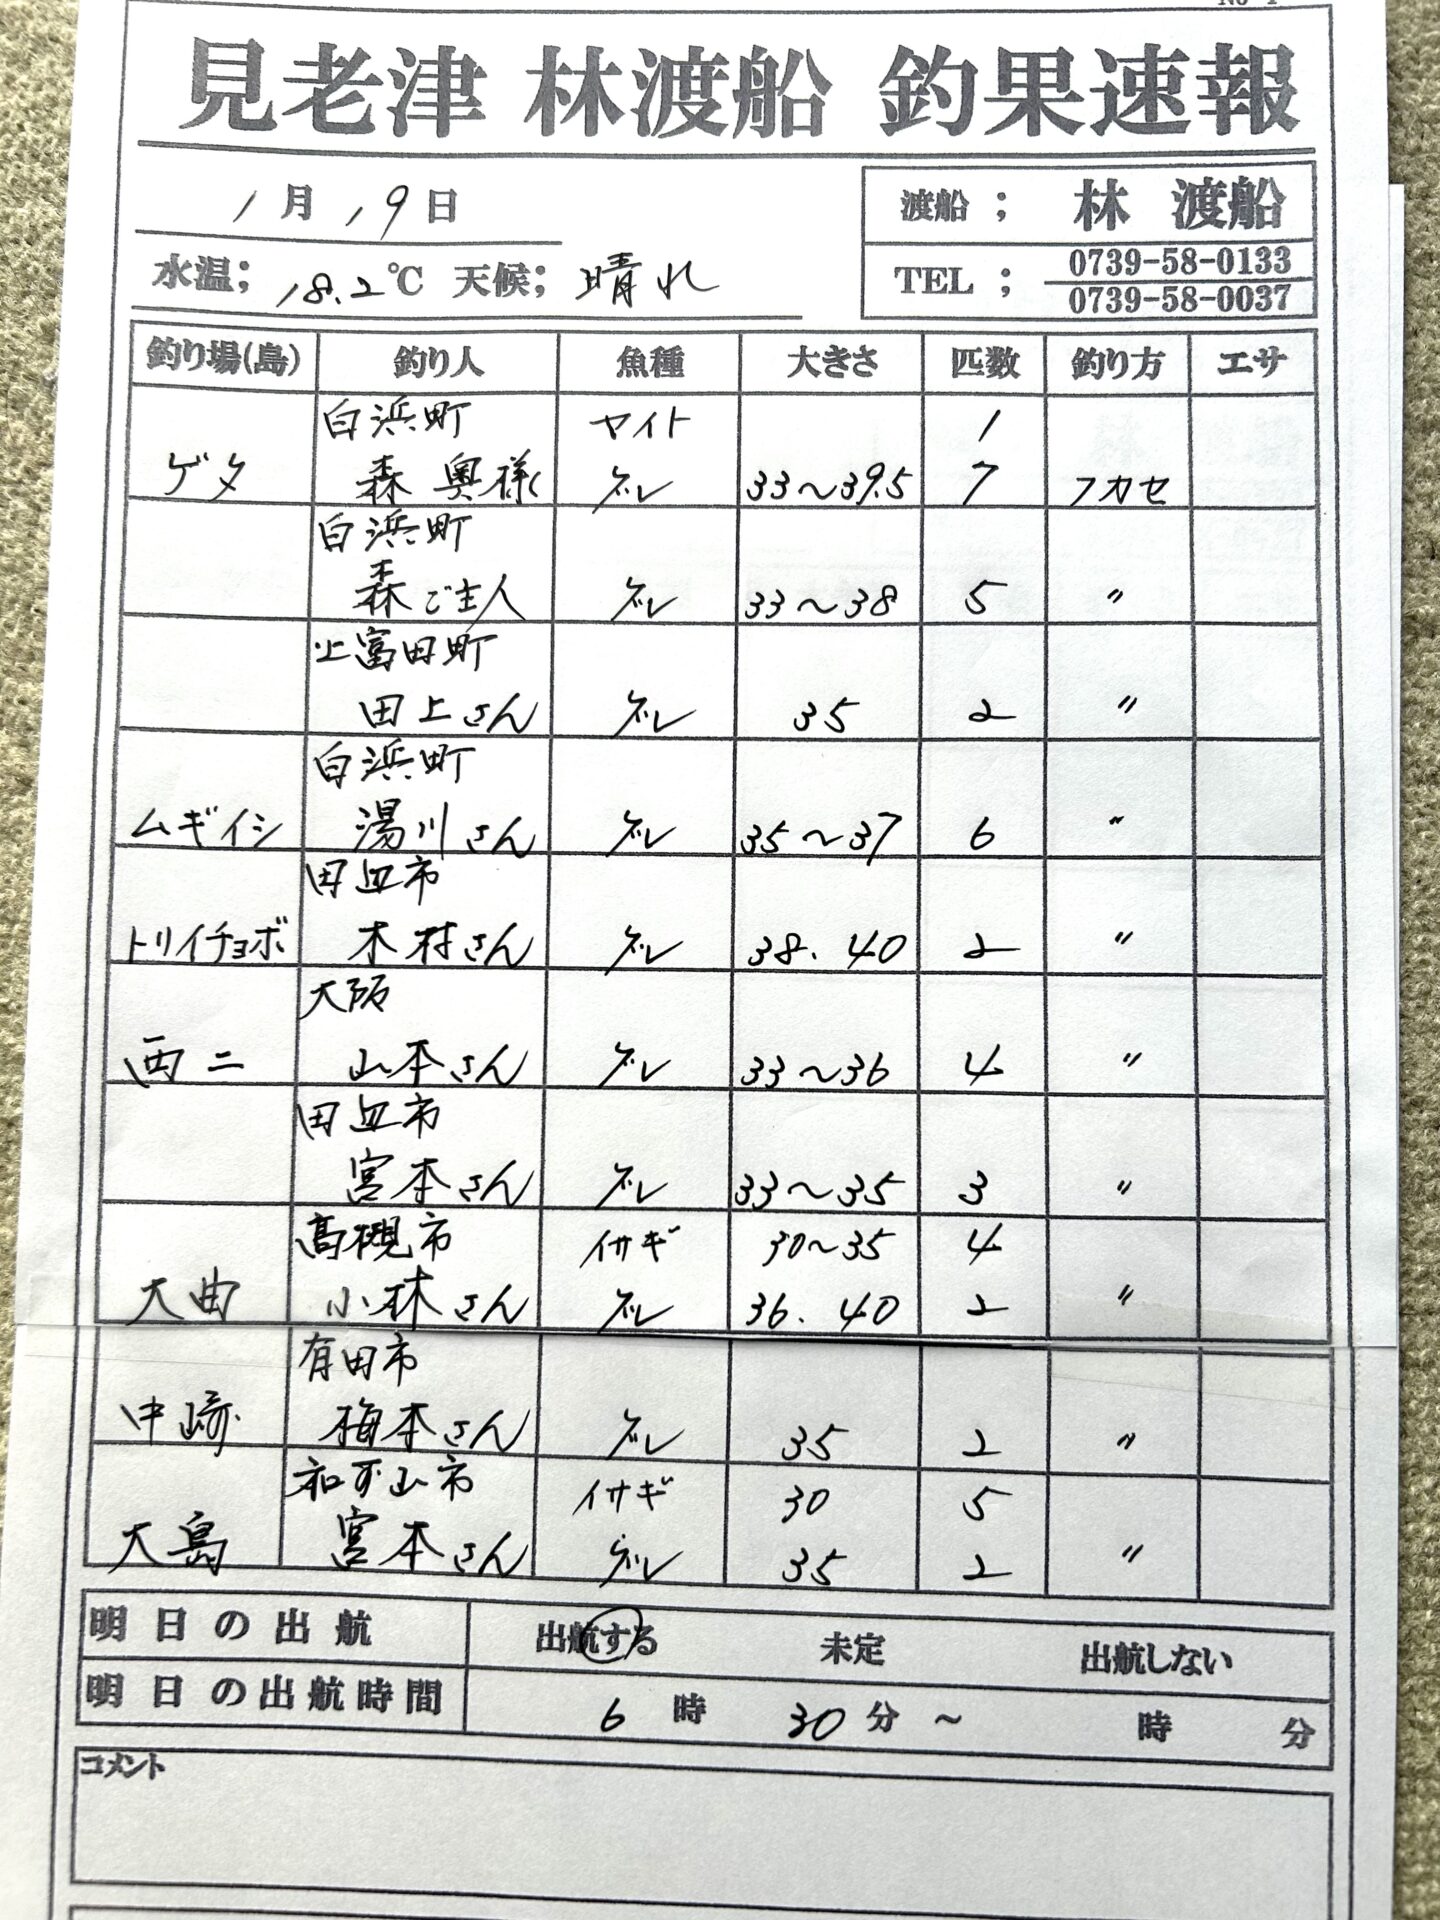 見老津 林渡船 釣果速報
1月19日
渡船； 林 渡船
水温； 18.2℃ 天候； 晴れ
TEL ； 0739-58-0133
0739-58-0037
釣り場(島) 釣り人 魚種 大きさ 匹数 釣り方 エサ
白浜町 サイト 1
ゲタ 森 奥様 グレ 33～39.5 7 フカセ
白浜町
森ご主人 グレ 33～38 5 〃
上富田町
田上さん グレ 35 2 〃
白浜町
ムギイシ 湯川さん グレ 35～37 6 〃
田辺市
トリイチョボ 木村さん グレ 38. 40 2 〃
大阪
西二 山本さん グレ 33～36 4 〃
田辺市
宮本さん グレ 33～35 3 〃
高槻市 イサギ 30～35 4
大曲 小林さん グレ 36. 40 2 〃
有田市
中崎 梅本さん グレ 35 2 〃
和歌山市 イサギ 30 5
大島 宮本さん グレ 35 2 〃
明日の出航 出航する 未定 出航しない
明日の出航時間 6 時 30 分 ～ 時 分
コメント